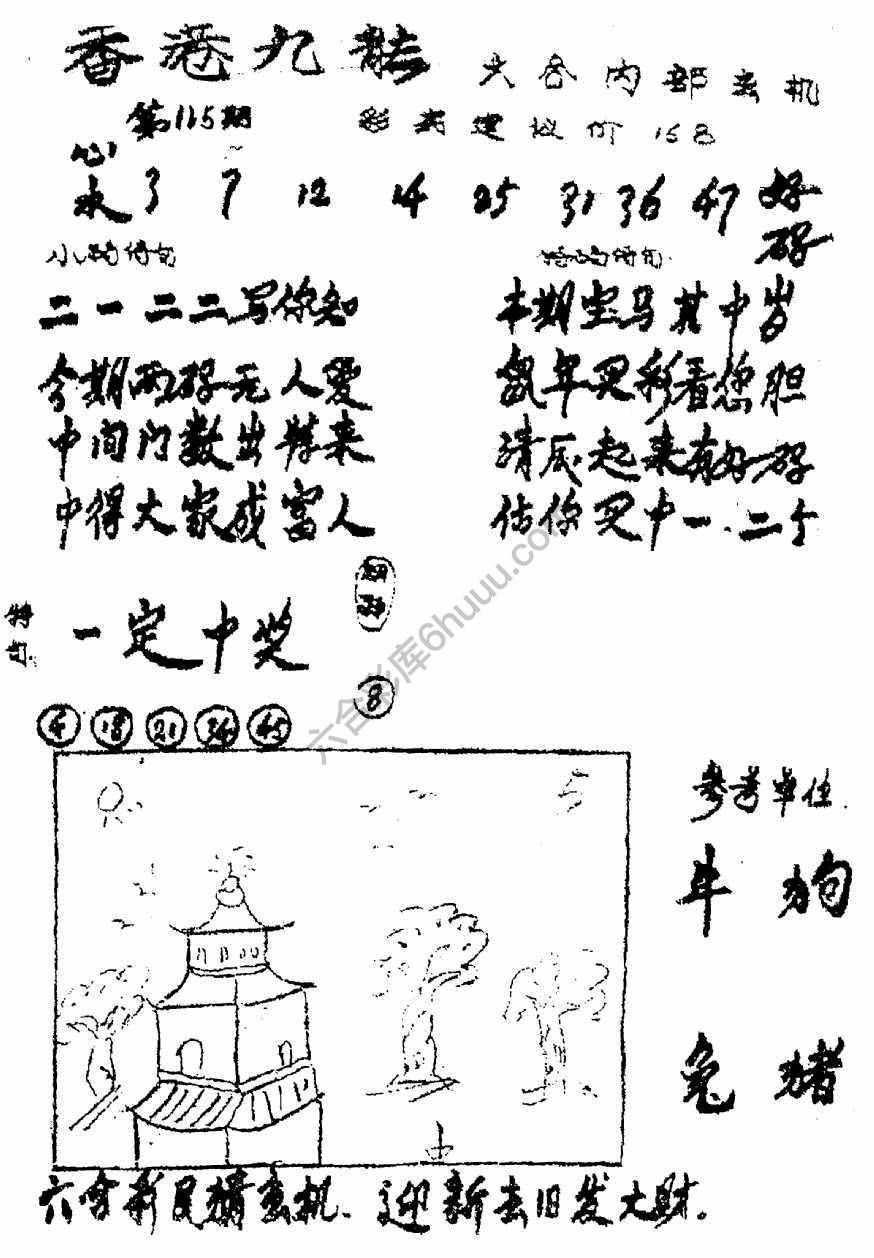 香港九龙
六合内部玄机
第115期
彩民建议价168
心水 3 7 12 14 25 31 36 47 好码
二一二二写你知
今期两码无人爱
中间门数出特来
中得大家成富人
本期宝马其中岁
鼠年买彩看您胆
清底起来有好码
估你买中一.二个
特句.
一定中奖
8
4 18 21 34 45
5
参考单位.
牛 狗
兔 猪
六合彩民猜玄机.迎新去旧发大财.
六合彩库6huuu.com